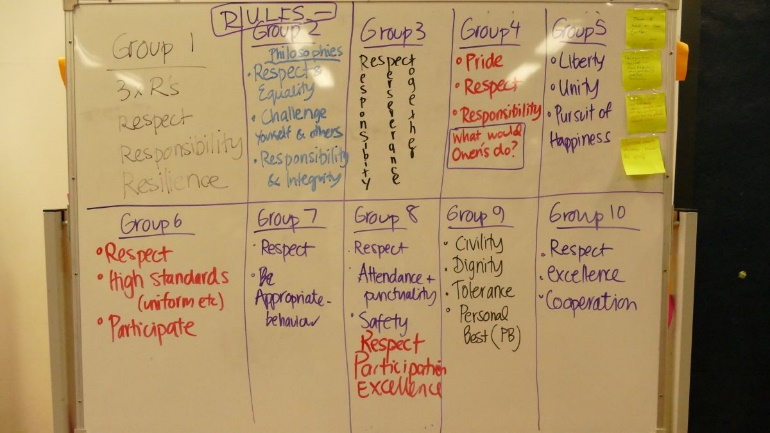 RULES -
Group 1
3xR's
Respect
Responsibility
Resilience
Group 2
Philosophies
• Respect &
Equality
• Challenge
yourself & others
• Responsibility
& Integrity
Group 3
Respect
Responsibity
Perseverance
together
Group 4
• Pride
• Respect
• Responsibility
What would
Owen's do?
Group 5
• Liberty
• Unity
• Pursuit of
Happiness
Group 6
• Respect
• High standards
(uniform etc)
• Participate
Group 7
• Respect
• Be
Appropriate-
behaviour
Group 8
• Respect
• Attendance +
punctuality
• Safety
Respect
Participation
Excellence
Group 9
• Civility
• Dignity
• Tolerance
• Personal
Best (PB)
Group 10
• Respect
• excellence
• Cooperation